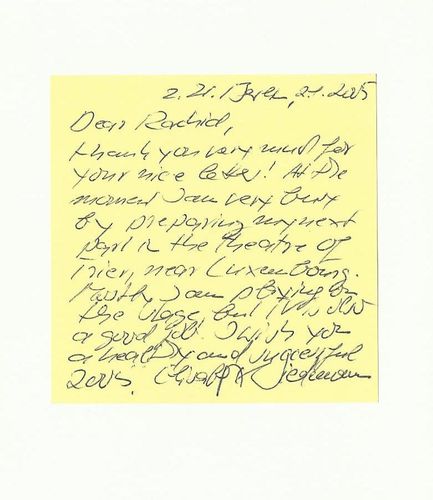 z. Zt. Trier, 2.1.2005
Dear Rachid,
thank you very much for
your nice letter! At the
moment I am very busy
by preparing my next
part in the theatre of
Trier, near Luxembourg.
Mostly I am playing on
the stage, but it is also
a good job. I wish you
a healthy and successful
2005. Wiedmann